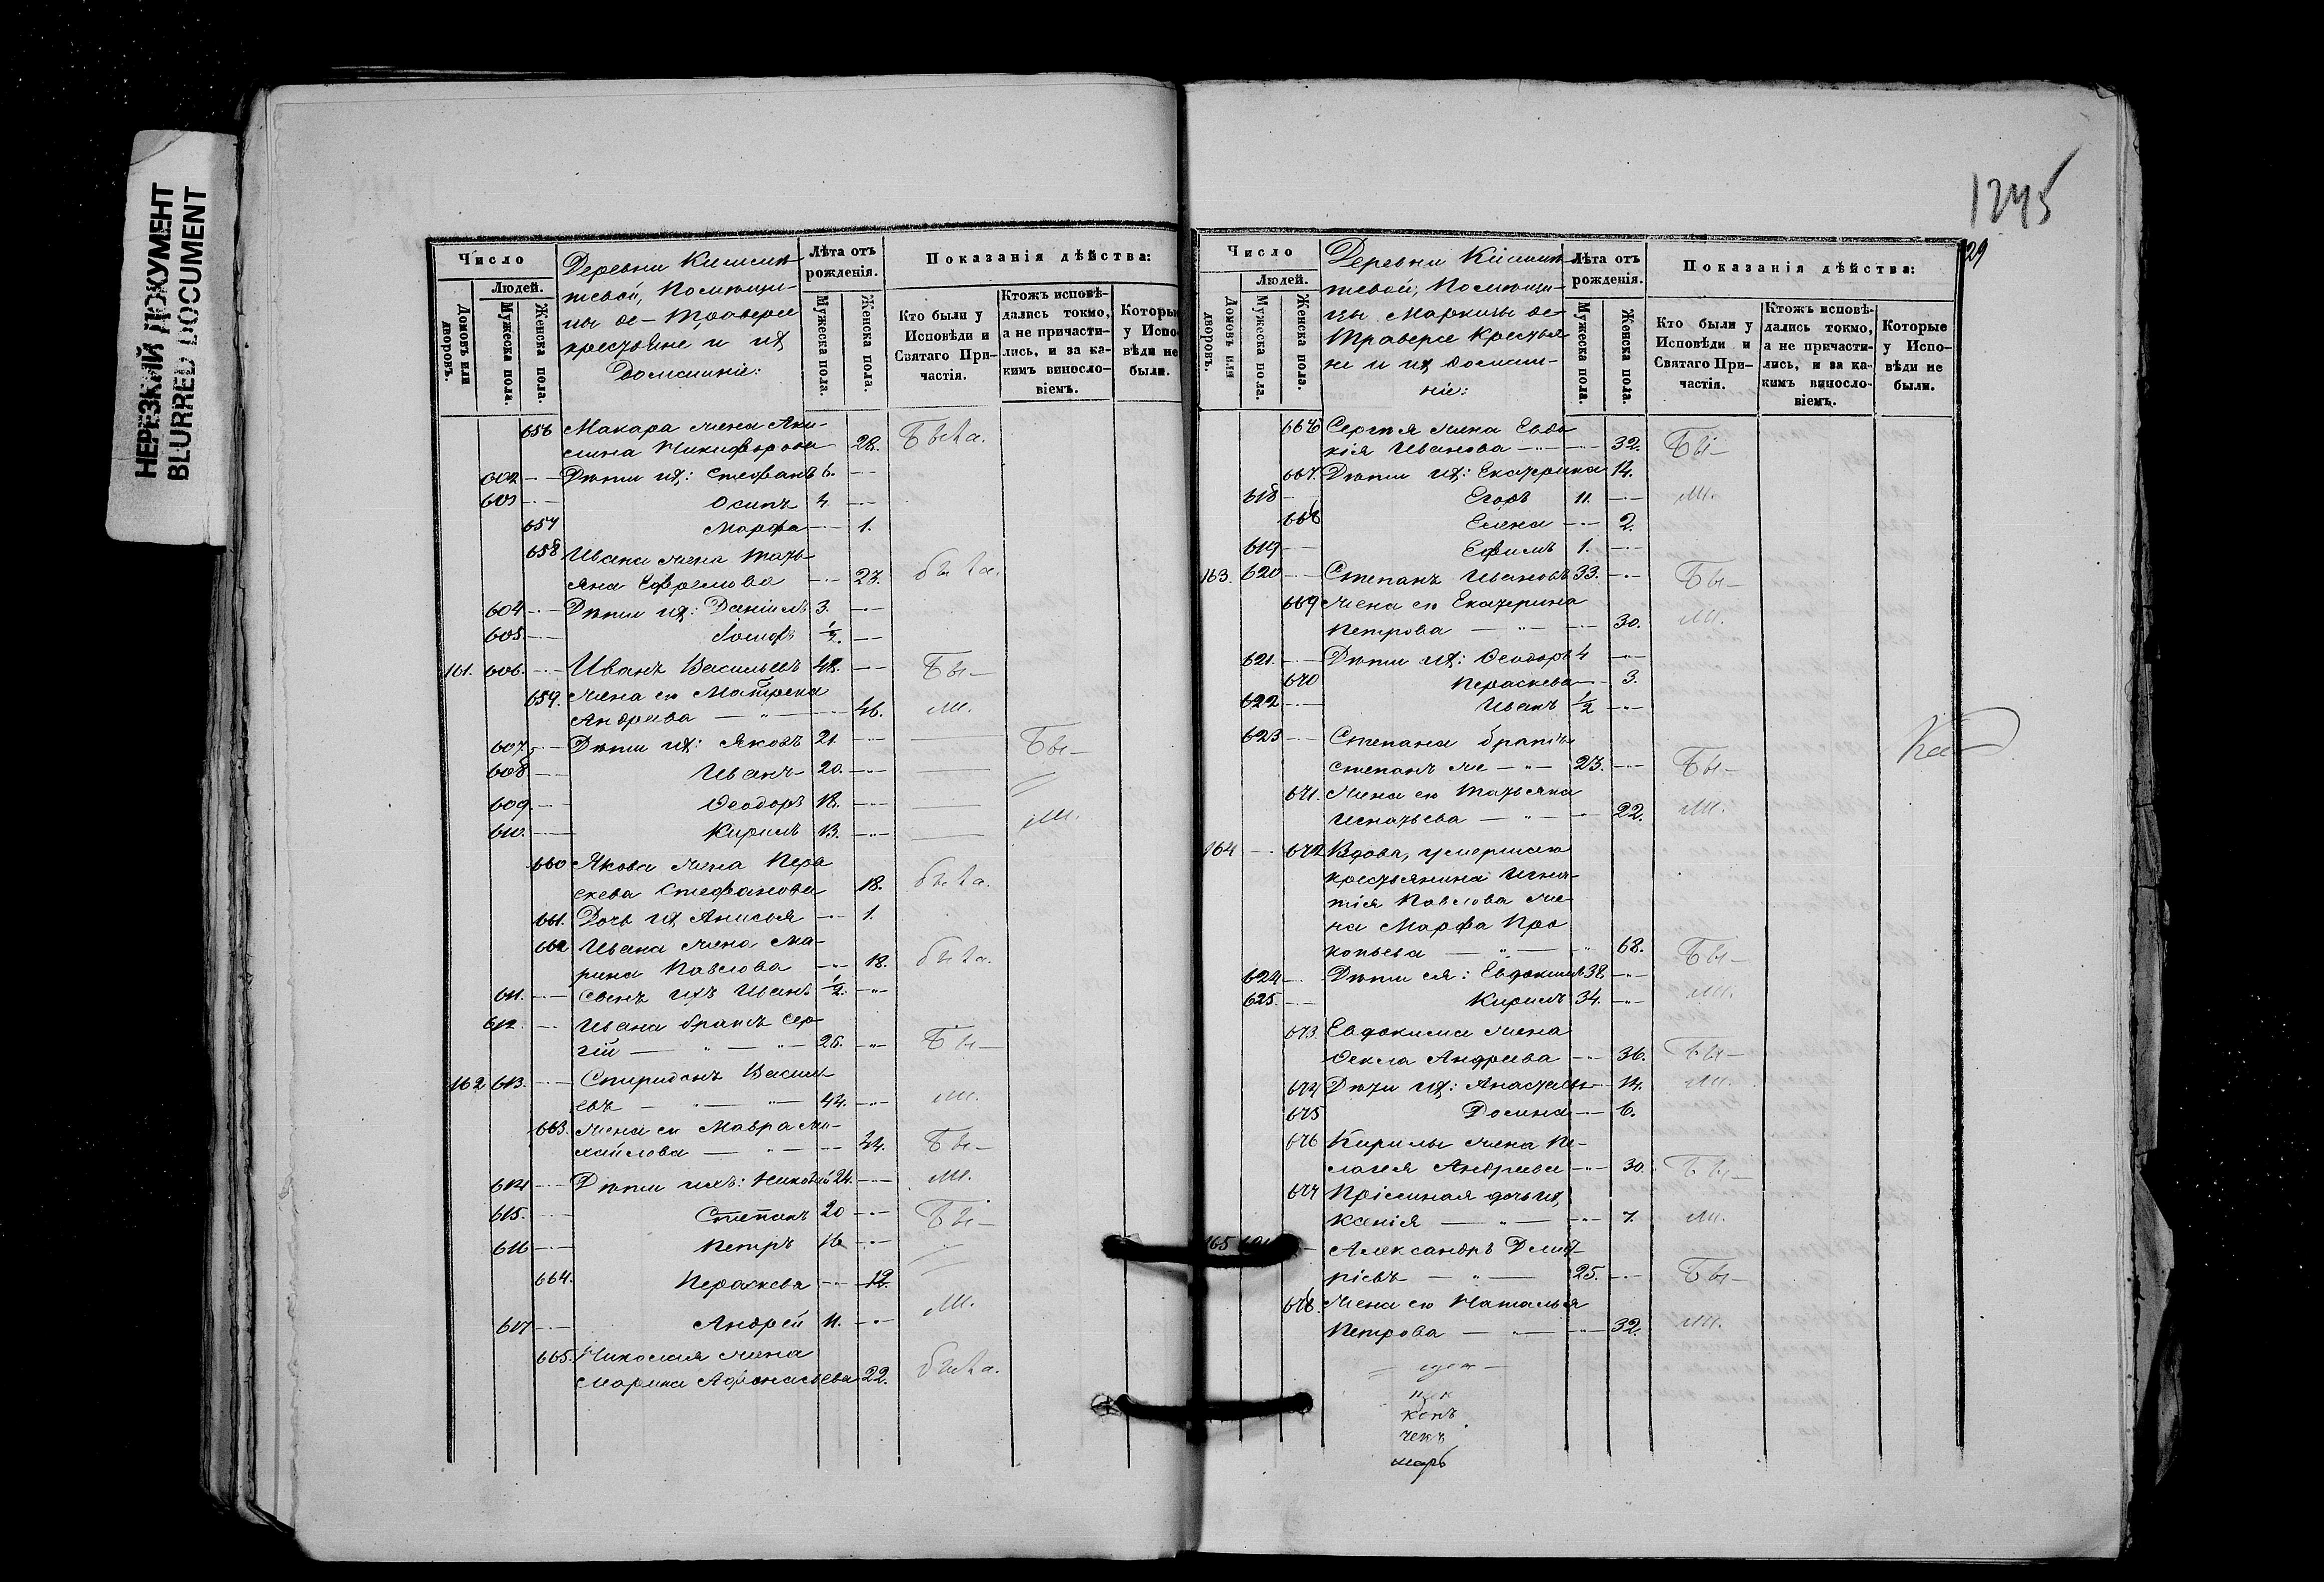 НЕРЕЗКИЙ ДОКУМЕНТ
BLURRED DOCUMENT
1245
29
Число
Людей.
Домовъ или дворовъ.
Мужеска пола.
Женска пола.
Деревни
помѣщи-
цы де-Траверсе
крестьяне и ихъ
домашніе:
Лѣта отъ рожденія.
Мужеска пола.
Женска пола.
Показанія дѣйства:
Кто были у Исповѣди и Святаго При-частія.
Ктожъ исповѣ-дались токмо, а не причасти-лись, и за ка-кимъ винослo-віемъ.
Которые у Испо-вѣди не были.
656 Макара жена Аку-
лина Никифорова 28. Была.
602 Дѣти ихъ: Стефанъ 6.
603 Осипъ 4.
657 Марфа 1.
658 Ивана жена Тать-
яна Ефремова 23. была.
604 Дѣти ихъ: Даніилъ 3.
605. Іосифъ 1/2.
161. 606. Иванъ Васильевъ 48. Бы-
659. Жена его Матрена
Андреева 46. ли.
607. Дѣти ихъ: Яковъ 21. Бы-
608 Иванъ 20.
609 Ѳеодоръ 18.
610. Кирилъ 13. ли.
660 Якова жена Пера-
скева Стефанова 18. была.
661. Дочь ихъ Анисья 1.
662 Ивана жена Ма-
рина Павлова 18. была.
611. Сынъ ихъ Иванъ 1/2.
612. Ивана братъ Сер-
гій 26. Бы-
162 613. Спиридонъ Василь-
евъ 44. ли.
663. Жена его Мавра Ми-
хайлова 44. Бы-
614 Дѣти ихъ: Николай 24. ли.
615. Степанъ 20 Бы-
616 Петръ 16
664. Пераскева 12.
617 Андрей 11. ли.
665. Николая жена
Марина Афонасьева 22. была.
Число
Людей.
Домовъ или дворовъ.
Мужеска пола.
Женска пола.
Деревни
помѣщи-
цы Маркизы де-
Траверсе крестья-
не и ихъ домаш-
ніе:
Лѣта отъ рожденія.
Мужеска пола.
Женска пола.
Показанія дѣйства:
Кто были у Исповѣди и Святаго При-частія.
Ктожъ исповѣ-дались токмо, а не причасти-лись, и за ка-кимъ винослo-віемъ.
Которые у Испо-вѣди не были.
666 Сергѣя жена Евдо-
кія Иванова 32. Бы-
667. Дѣти ихъ: Екатерина 14.
618 Егоръ 11. ли.
668 Елена 2.
619 Ефимъ 1.
163. 620 Степанъ Ивановъ 33. Бы-
669 Жена его Екатерина
Петрова 30. ли.
621. Дѣти ихъ: Ѳеодоръ 4
670 Пераскева 3.
622 Иванъ 1/2
623 Степана братъ
Степанъ же 23. Бы-
671. Жена его Татьяна
Игнатьева 22. ли.
164 672 Вдова, умершаго
крестьянина Игна-
тія Павлова же-
на Марфа Про-
копьева 68. Бы-
624 Дѣти ея: Евдокимъ 38.
625. Кирилъ 34. ли.
673. Евдокима жена
Ѳекла Андреева 36. Бы-
674 Дѣти ихъ: 14. ли.
675 6.
676 Кирилы жена Пе-
лагея Андреева 30. Бы-
677 дочь ихъ,
Ксенія 7. ли.
165 Александръ Дмит-
ріевъ 25. Бы-
678. Жена его Наталья
Петрова 32. ли.